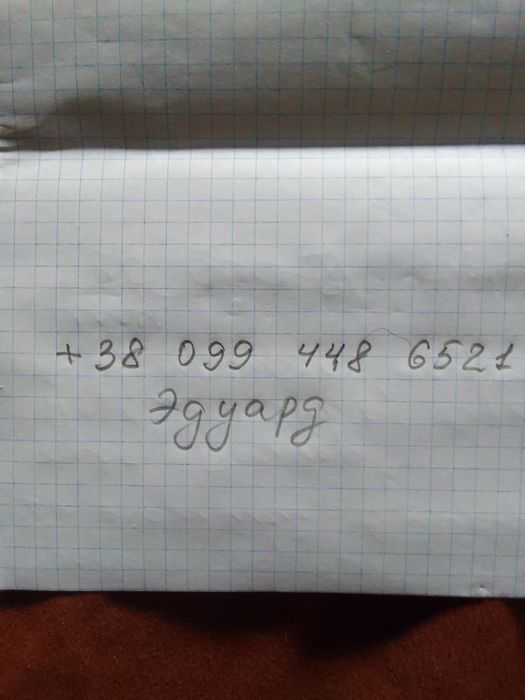 +38 099 448 6521
Эдуард